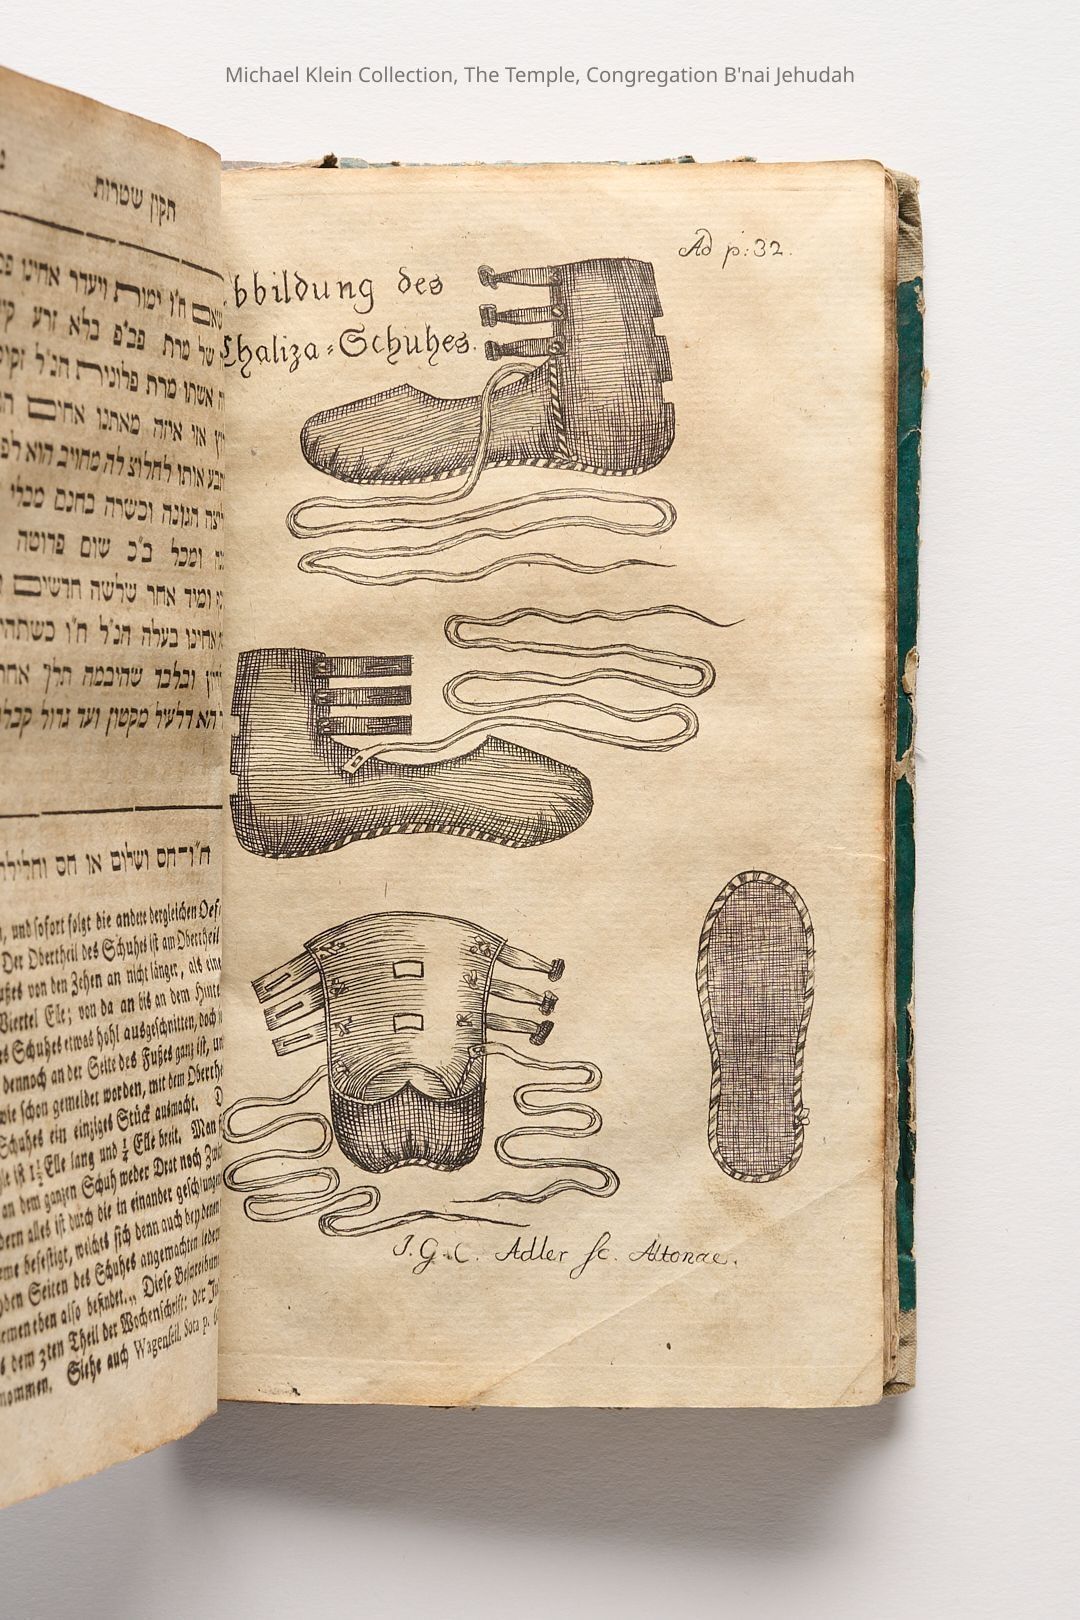 Michael Klein Collection, The Temple, Congregation B'nai Jehudah
תקון שטרות
ח"ו ימות ויעדר אחינו
של מרת פב"פ בלא זרע
אשתו מרת פלונית הנ"ל
או איזה מאתנו אחים
אותו לחלוץ לה מחויב הוא
הגונה וכשרה בחנם מבלי
ומכל ב"כ שום פרוטה
ומיד אחר שלשה חדשים
אחינו בעלה הנ"ל ח"ו
ובלבד שהיבמה תלך אחר
דלשיל מקטון ועד גדול
ח"ו־חס ושלום או חס וחלילה
und sofort folgt die andere dergleichen
Der Obertheil des Schuhes ist am Obertheil
von den Zehen an nicht länger, als eine
Viertel Elle; von da an bis an dem
Schuhes etwas hohl ausgeschnitten, doch
dennoch an der Seite des Fußes ganz ist,
wie schon gemeldet worden, mit dem
Schuhes ein einziges Stück ausmacht.
ist 1½ Elle lang und ¼ Elle breit. Man
an dem ganzen Schuh weder Drat noch
alles ist durch die in einander
befestigt, welches sich denn auch bey denen
den Seiten des Schuhes angemachten
eben also befindet. Diese
dem 3ten Theil der Wochenschrift: der
Siehe auch Wagenseil. Sota p.
Ad p: 32.
bbildung des
Chaliza-Schuhes.
I. G. C. Adler sc. Altonae.